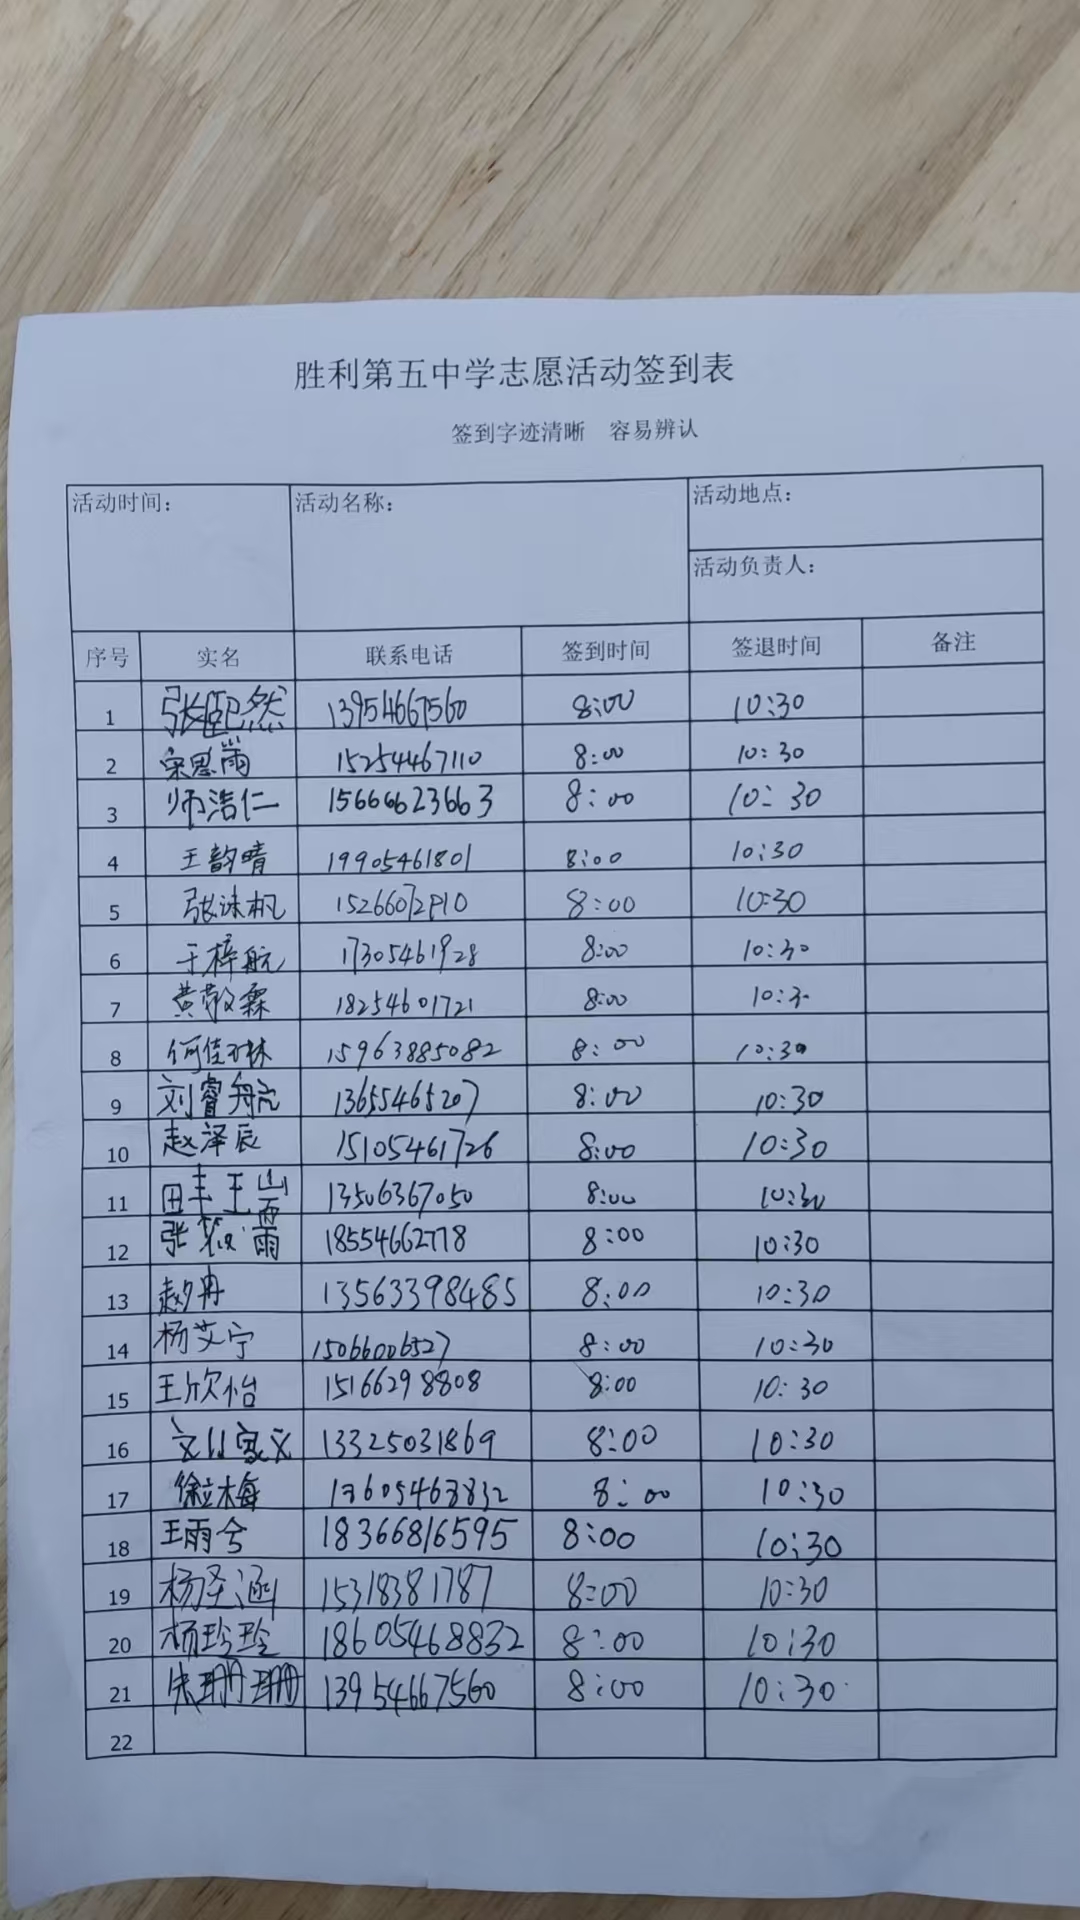 胜利第五中学志愿活动签到表
签到字迹清晰 容易辨认
活动时间： 活动名称： 活动地点：
活动负责人：
序号 实名 联系电话 签到时间 签退时间 备注
1 张熙然 13954667560 8:00 10:30
2 宋思雨 15254467110 8:00 10:30
3 师浩仁 15666623663 8:00 10:30
4 王韵晴 19905461801 8:00 10:30
5 张沫枫 8:00 10:30
6 于梓航 17305461928 8:00 10:30
7 黄敬霖 18254601721 8:00 10:30
8 何佳琳 15963885082 8:00 10:30
9 刘睿航 13655465207 8:00 10:30
10 赵泽辰 15105461726 8:00 10:30
11 田丰玉 13506367050 8:00 10:30
12 张 18554662778 8:00 10:30
13 赵冉 13563398485 8:00 10:30
14 杨艾宁 15066006527 8:00 10:30
15 王欣怡 15166298808 8:00 10:30
16 13325031869 8:00 10:30
17 13605463832 8:00 10:30
18 王雨兮 18366816595 8:00 10:30
19 杨圣涵 15318381787 8:00 10:30
20 杨玲玲 18605468832 8:00 10:30
21 朱珊珊 13954667560 8:00 10:30
22